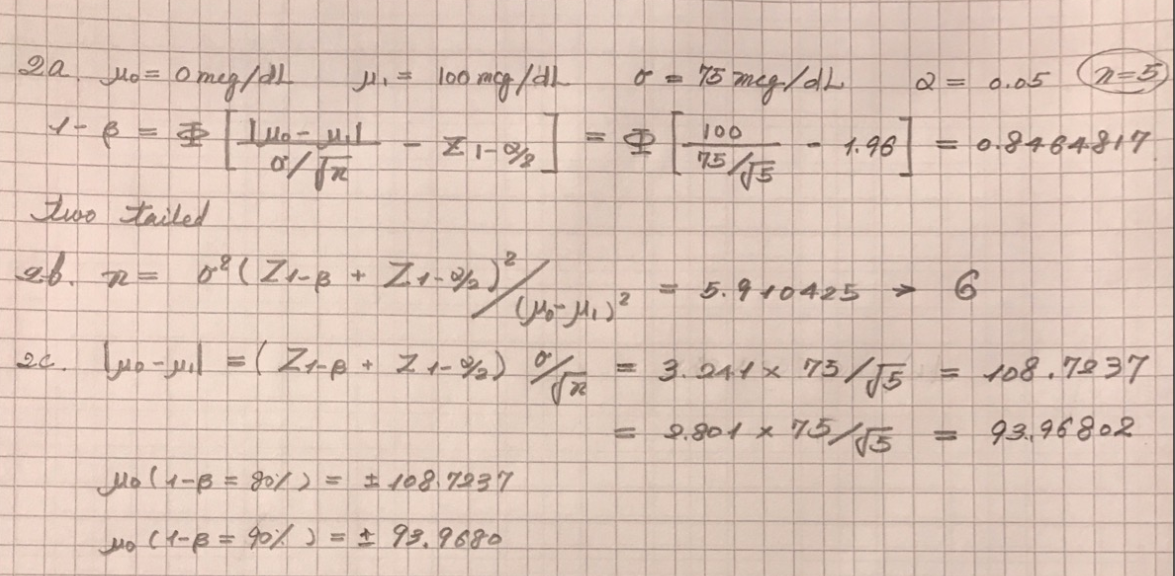 2a. μ0 = 0 mcg/dL μ1 = 100 mcg/dL σ = 75 mcg/dL α = 0.05 n=5
1-β = Φ [ |μ0 - μ1| / σ/√n - Z1-α/2 ] = Φ [ 100 / 75/√5 - 1.96 ] = 0.8464817
two tailed
2b. n = σ²(Z1-β + Z1-α/2)² / (μ0-μ1)² = 5.910425 → 6
2c. |μ0-μ1| = (Z1-β + Z1-α/2) σ/√n = 3.241 × 75/√5 = 108.7237
= 2.801 × 75/√5 = 93.96802
μ0 (1-β = 80%) = ±108.7237
μ0 (1-β = 90%) = ± 93.9680